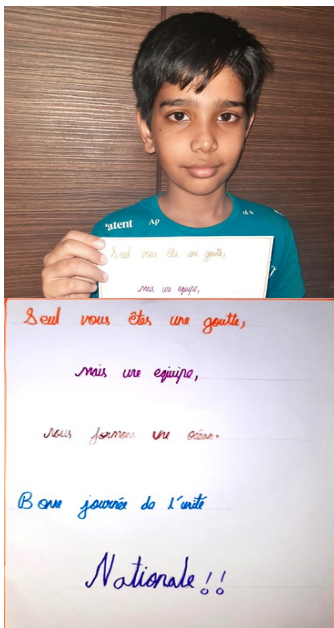 atent Ap
Seul vous êtes une goutte,
mais une equipe,
Seul vous êtes une goutte,
mais une equipe,
nous formons une océan.
Bone journée de l'unité
Nationale!!